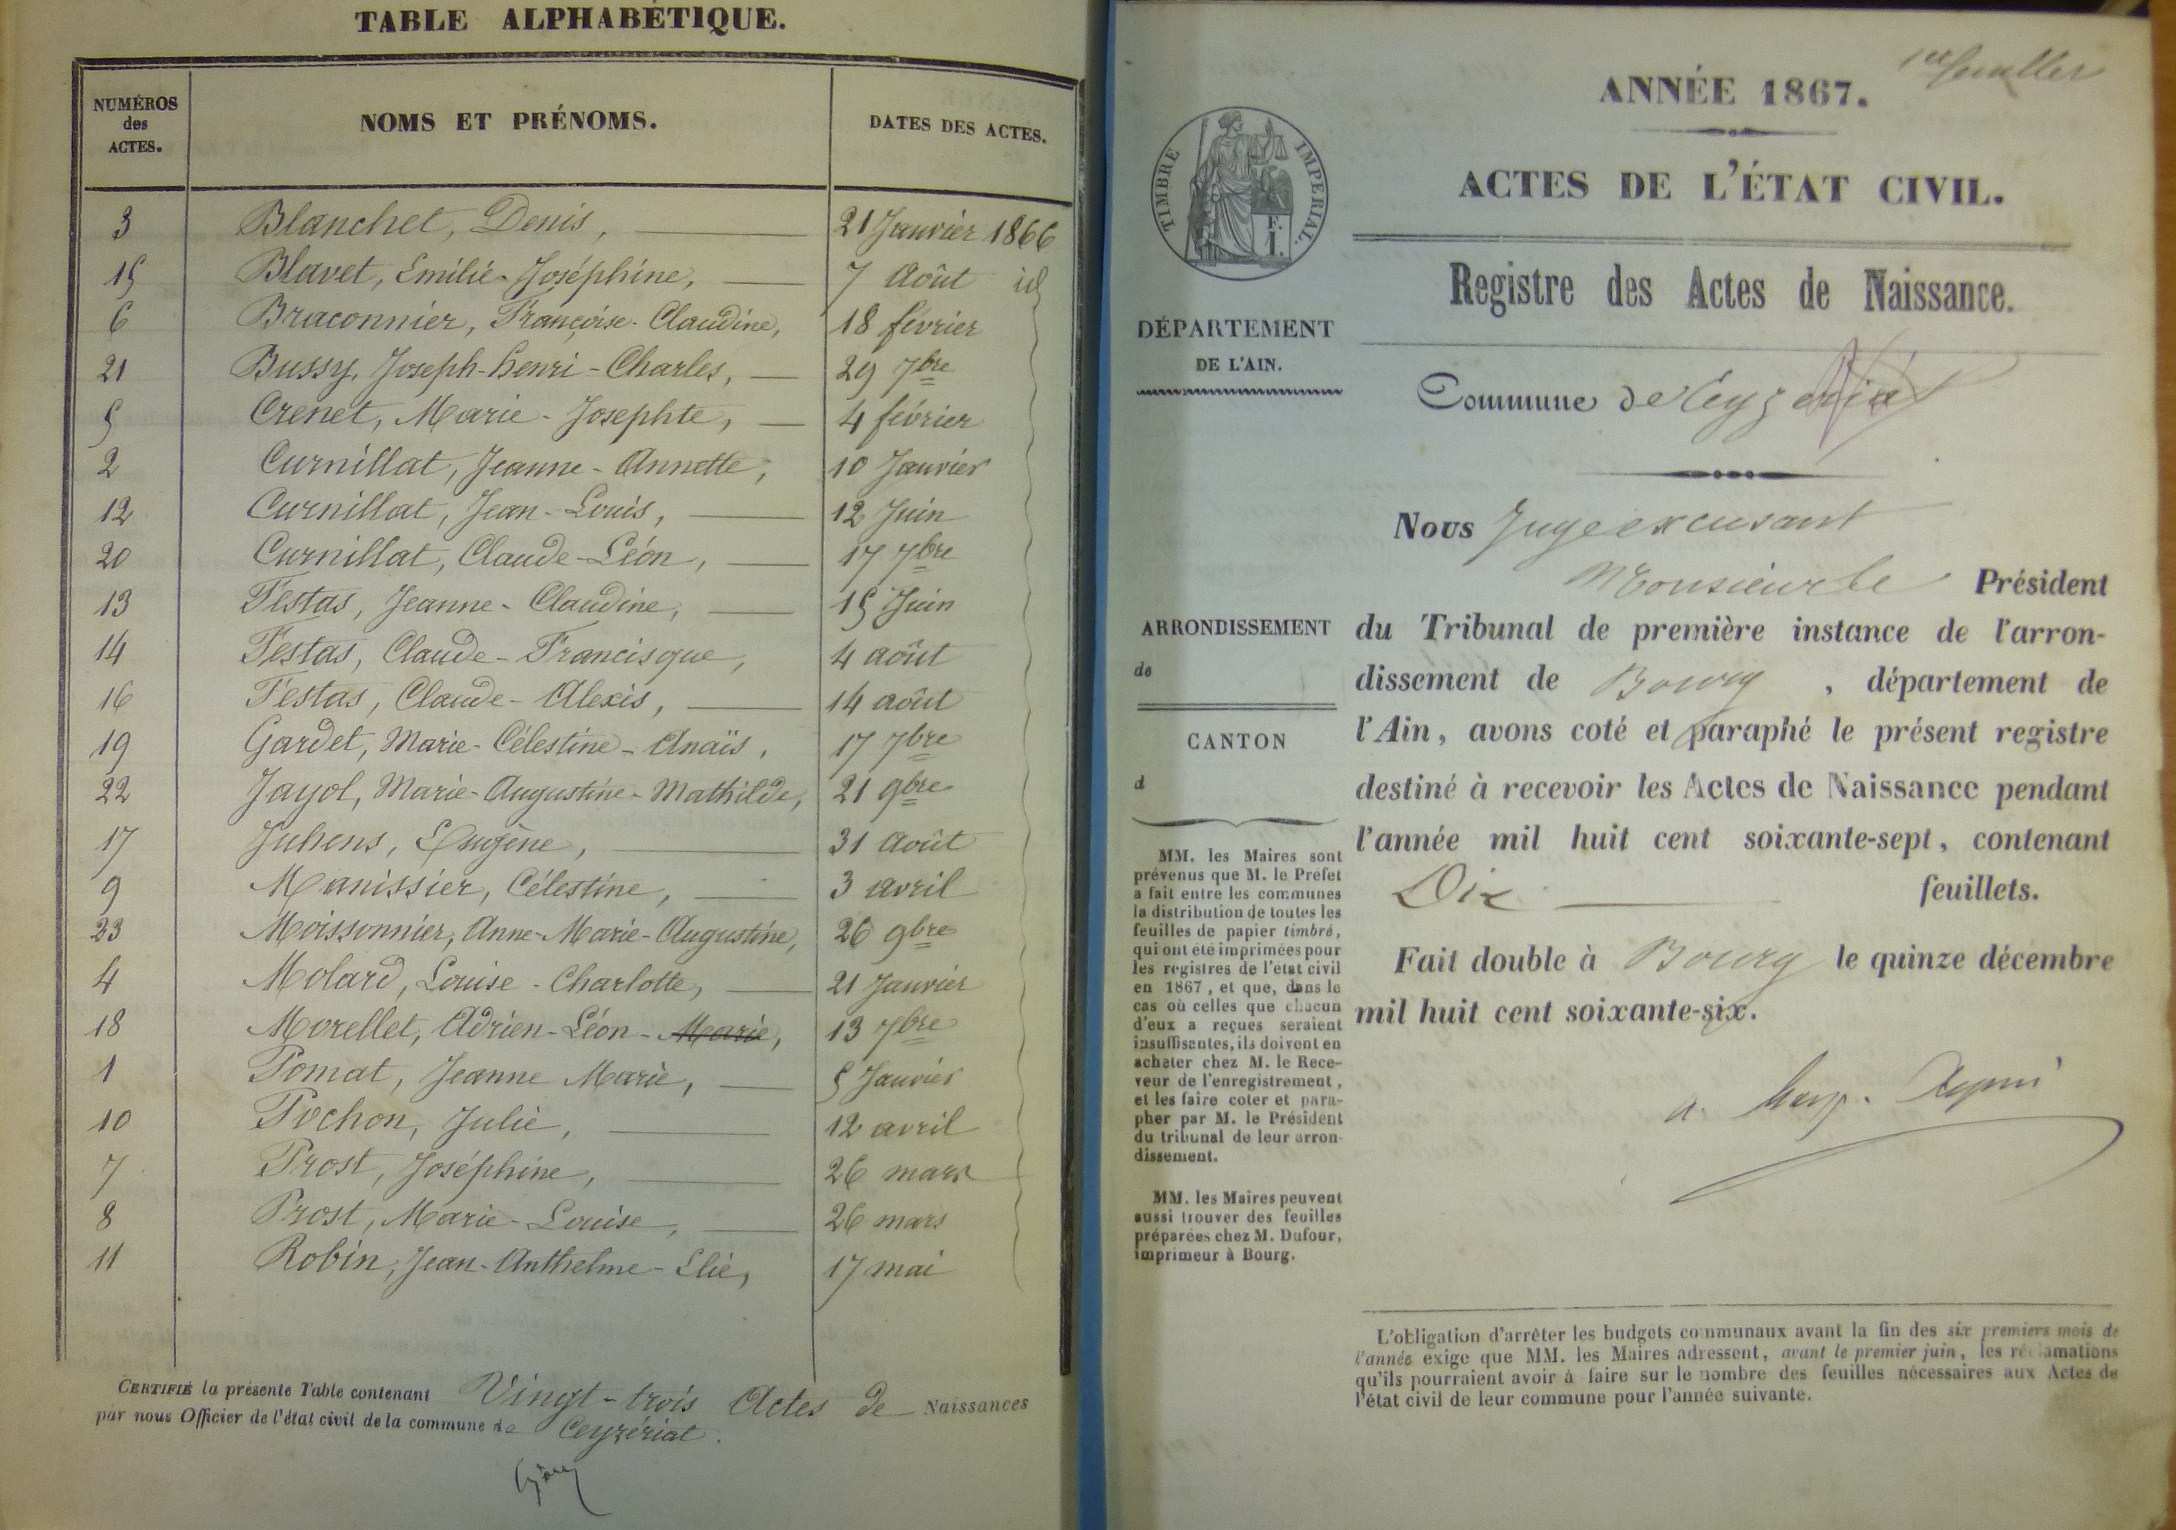 TABLE ALPHABÉTIQUE.
NUMÉROS des ACTES. NOMS ET PRÉNOMS. DATES DES ACTES.
3 Blanchet, Denis, 21 Janvier 1866
15 Blavet, Emilie-Joséphine, 7 Août id
6 Braconnier, Françoise-Claudine, 18 février
21 Bussy, Joseph-henri-Charles, 29 7bre
5 Crenet, Marie-Josephte, 4 février
2 Curnillat, Jeanne-Annette, 10 Janvier
12 Curnillat, Jean-Louis, 12 Juin
20 Curnillat, Claude-Léon, 17 7bre
13 Festas, Jeanne-Claudine, 15 Juin
14 Festas, Claude-Francisque, 4 août
16 Festas, Claude-Alexis, 14 août
19 Gardet, Marie-Célestine-Anaïs, 17 7bre
22 Jayol, Marie-Augustine-Mathilde, 21 9bre
17 Juhens, Eugène, 31 Août
9 Manissier, Célestine, 3 avril
23 Moissonnier, Anne-Marie-Augustine, 26 9bre
4 Molard, Louise-Charlotte, 21 Janvier
18 Morellet, Adrien-Léon-Marie, 13 7bre
1 Pomat, Jeanne Marie, 5 Janvier
10 Pochon, Julie, 12 avril
7 Prost, Joséphine, 26 mars
8 Prost, Marie-Louise, 26 mars
11 Robin, Jean-Anthelme-Elie, 17 mai
CERTIFIÉ la présente Table contenant Vingt-trois Actes de Naissances
par nous Officier de l'état civil de la commune de Ceyzériat.
1er feuillet
ANNÉE 1867.
ACTES DE L'ÉTAT CIVIL.
TIMBRE IMPERIAL.
F.
1.
Registre des Actes de Naissance.
DÉPARTEMENT
DE L'AIN.
Commune de Ceyzériat
Nous Juge excusant
Monsieur le Président
ARRONDISSEMENT
de
CANTON
d
du Tribunal de première instance de l'arron-
dissement de Bourg, département de
l'Ain, avons coté et paraphé le présent registre
destiné à recevoir les Actes de Naissance pendant
l'année mil huit cent soixante-sept, contenant
Dix feuillets.
Fait double à Bourg le quinze décembre
mil huit cent soixante-six.
MM. les Maires sont
prévenus que M. le Préfet
a fait entre les communes
la distribution de toutes les
feuilles de papier timbré,
qui ont été imprimées pour
les registres de l'état civil
en 1867, et que, dans le
cas où celles que chacun
d'eux a reçues seraient
insuffisantes, ils doivent en
acheter chez M. le Rece-
veur de l'enregistrement,
et les faire coter et para-
pher par M. le Président
du tribunal de leur arron-
dissement.
MM. les Maires peuvent
aussi trouver des feuilles
préparées chez M. Dufour,
imprimeur à Bourg.
L'obligation d'arrêter les budgets communaux avant la fin des six premiers mois de
l'année exige que MM. les Maires adressent, avant le premier juin, les réclamations
qu'ils pourraient avoir à faire sur le nombre des feuilles nécessaires aux Actes de
l'état civil de leur commune pour l'année suivante.